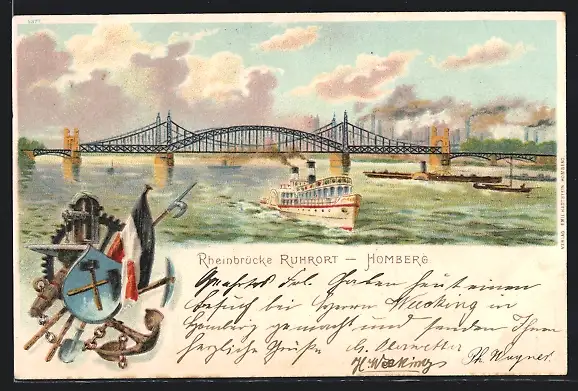 Rheinbrücke RUHRORT — HOMBERG
Geehrtes Frl. Haben heut einen
Besuch bei Herrn Wacking in
Homberg gemacht und senden Ihnen
herzliche Grüße
H. Wacking
Ph. Wagner.
VERLAG HOMBERG.